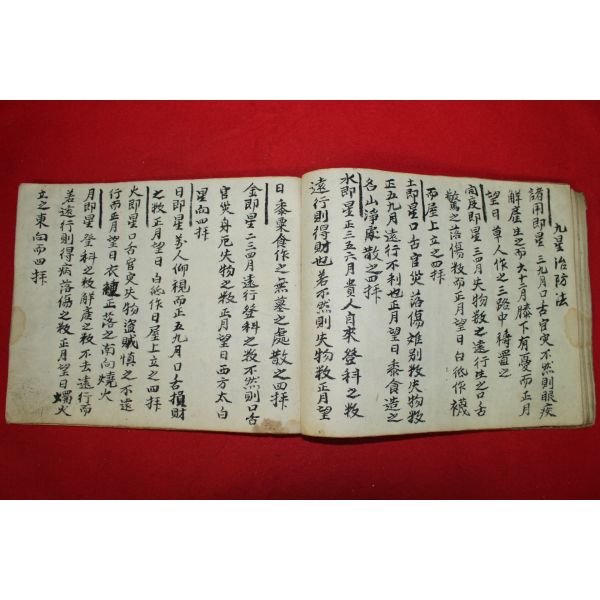 九星治防法
諸用即星 三九月口舌官灾 不然則眼疾
解産生之而 六十二月膝下有憂而正月
望日 草人作之三路中 祷置之
宿度即星 三四月失物数之 遠行生之口舌
驚之落傷数而正月望日 白低作襪
而屋上立之四拜
土即星口舌官灾落傷雄别数失物数
正五九月遠行不利也 正月望日 黍食造之
名山浄處散之四拜
水即星正三五六月貴人自来登科之数
遠行則得財也 若不然則失物数正月望
日 黍粟食作之無墓之處散之四拜
金即星 二三四月遠行登科之数不然則口舌
官灾身厄失物之数正月望日西方太白
星向四拜
日即星萬人仰視而正五九月口舌損財
之数正月望日 白低作日屋上立之四拜
火即星口舌官灾失物盗賊慎之不遠
行而正月望日 衣 正落之南向燒火
月即星登科之数解産之数不去遠行而
若遠行則得病落傷之数正月望日 燭火
立之東向而四拜